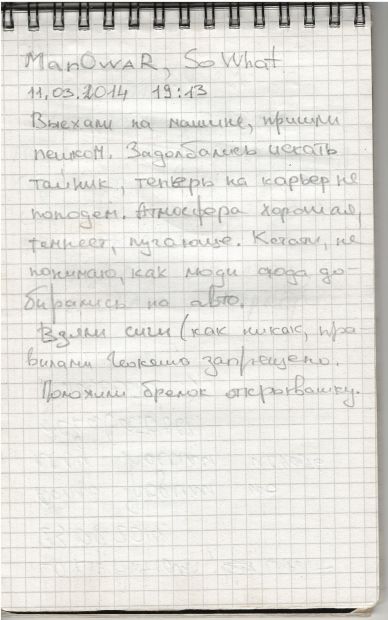 ManOwaR, So What
11.03.2014 19:13
Выехали на машине, пришли
пешком. Задолбались искать
тайник, теперь на карьер не
попадем. Атмосфера хорошая,
темнеет, пугающе. Кстати, не
понимаю, как люди сюда до-
бирались на авто.
Взяли сиги (как никак, пра-
вилами Геокеша запрещено.
Положили брелок открывашку.